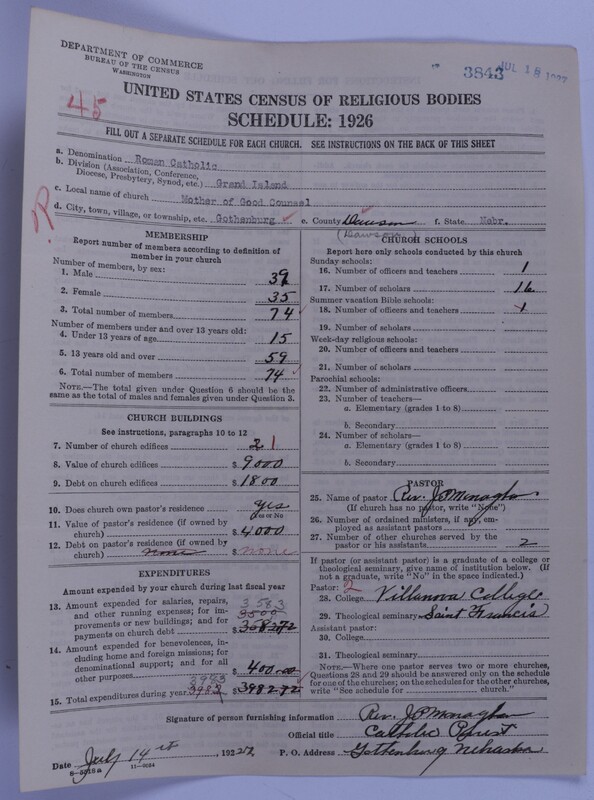 DEPARTMENT OF COMMERCE
BUREAU OF THE CENSUS
WASHINGTON
3843 JUL 18 1927
45
UNITED STATES CENSUS OF RELIGIOUS BODIES
SCHEDULE: 1926
FILL OUT A SEPARATE SCHEDULE FOR EACH CHURCH. SEE INSTRUCTIONS ON THE BACK OF THIS SHEET
a. Denomination Roman Catholic
b. Division (Association, Conference, Diocese, Presbytery, Synod, etc.) Grand Island
c. Local name of church Mother of Good Counsel
d. City, town, village, or township, etc. Gothenburg e. County Dawson f. State Nebr.
(Dawson)
R
MEMBERSHIP
Report number of members according to definition of
member in your church
Number of members, by sex:
1. Male 39
2. Female 35
3. Total number of members 74
Number of members under and over 13 years old:
4. Under 13 years of age 15
5. 13 years old and over 59
6. Total number of members 74
NOTE.—The total given under Question 6 should be the
same as the total of males and females given under Question 3.
CHURCH BUILDINGS
See instructions, paragraphs 10 to 12
7. Number of church edifices 2 1
8. Value of church edifices $ 9000
9. Debt on church edifices $ 1800
10. Does church own pastor's residence yes
Yes or No
11. Value of pastor's residence (if owned by
church) $ 4000
12. Debt on pastor's residence (if owned by
church) none $ none
EXPENDITURES
Amount expended by your church during last fiscal year
13. Amount expended for salaries, repairs,
and other running expenses; for im-
provements or new buildings; and for
payments on church debt 3583 $ 3582 72
14. Amount expended for benevolences, in-
cluding home and foreign missions; for
denominational support; and for all
other purposes $ 400.00
3983
15. Total expenditures during year 3982 $ 3982 72
CHURCH SCHOOLS
Report here only schools conducted by this church
Sunday schools:
16. Number of officers and teachers 1
17. Number of scholars 16
Summer vacation Bible schools:
18. Number of officers and teachers 1
19. Number of scholars
Week-day religious schools:
20. Number of officers and teachers
21. Number of scholars
Parochial schools:
22. Number of administrative officers
23. Number of teachers—
a. Elementary (grades 1 to 8)
b. Secondary
24. Number of scholars—
a. Elementary (grades 1 to 8)
b. Secondary
PASTOR
25. Name of pastor Rev. J P Monaghan
(If church has no pastor, write "None")
26. Number of ordained ministers, if any, em-
ployed as assistant pastors
27. Number of other churches served by the
pastor or his assistants 2
If pastor (or assistant pastor) is a graduate of a college or
theological seminary, give name of institution below. (If
not a graduate, write "No" in the space indicated.)
Pastor: 2
28. College Villanova College
29. Theological seminary Saint Francis
Assistant pastor:
30. College
31. Theological seminary
NOTE.—Where one pastor serves two or more churches,
Questions 28 and 29 should be answered only on the schedule
for one of the churches; on the schedules for the other churches,
write "See schedule for church."
Signature of person furnishing information Rev. J P Monaghan
Official title Catholic Priest
Date July 14th, 1927 P. O. Address Gothenburg Nebraska
8-5218a 11-9054